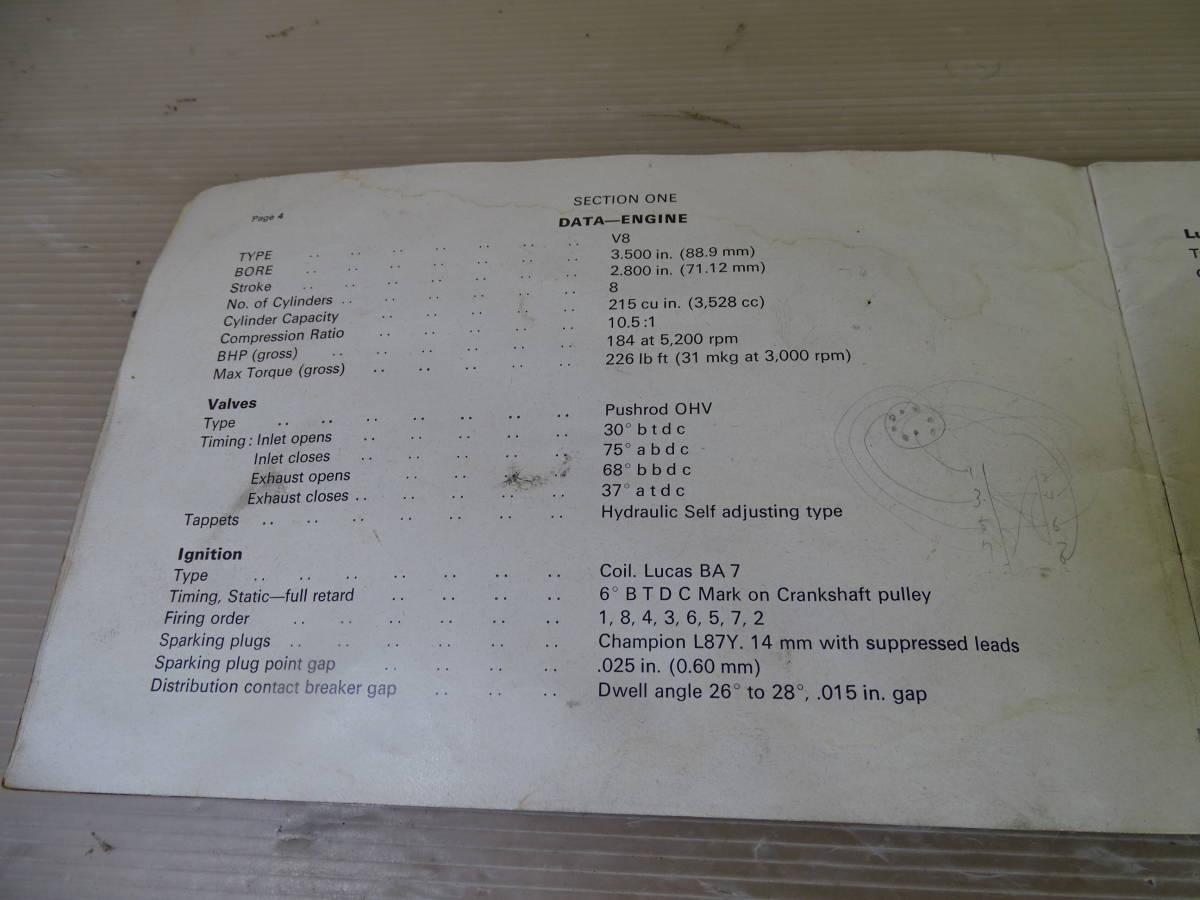 Page 4
SECTION ONE
DATA—ENGINE
TYPE .. .. .. .. .. .. V8
BORE .. .. .. .. .. .. 3.500 in. (88.9 mm)
Stroke .. .. .. .. .. .. 2.800 in. (71.12 mm)
No. of Cylinders .. .. .. .. .. .. 8
Cylinder Capacity .. .. .. .. .. 215 cu in. (3,528 cc)
Compression Ratio .. .. .. .. .. 10.5:1
BHP (gross) .. .. .. .. .. .. 184 at 5,200 rpm
Max Torque (gross) .. .. .. .. .. 226 lb ft (31 mkg at 3,000 rpm)
Valves
Type .. .. .. .. .. .. .. Pushrod OHV
Timing: Inlet opens .. .. .. .. .. 30° b t d c
Inlet closes .. .. .. .. .. 75° a b d c
Exhaust opens .. .. .. .. 68° b b d c
Exhaust closes .. .. .. .. .. 37° a t d c
Tappets .. .. .. .. .. .. .. Hydraulic Self adjusting type
Ignition
Type .. .. .. .. .. .. .. Coil. Lucas BA 7
Timing, Static—full retard .. .. .. .. 6° B T D C Mark on Crankshaft pulley
Firing order .. .. .. .. .. .. 1, 8, 4, 3, 6, 5, 7, 2
Sparking plugs .. .. .. .. .. .. Champion L87Y. 14 mm with suppressed leads
Sparking plug point gap .. .. .. .. .025 in. (0.60 mm)
Distribution contact breaker gap .. .. .. Dwell angle 26° to 28°, .015 in. gap